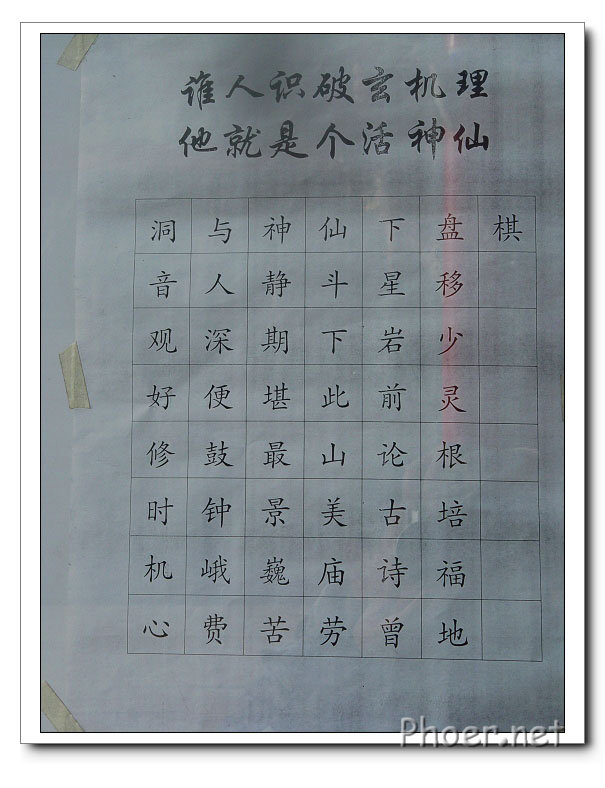 谁人识破玄机理
他就是个活神仙
洞与神仙下盘棋
音人静斗星移
观深期下岩少
好便堪此前灵
修鼓最山论根
时钟景美古培
机峨巍庙诗福
心费苦劳曾地
Phoer.net